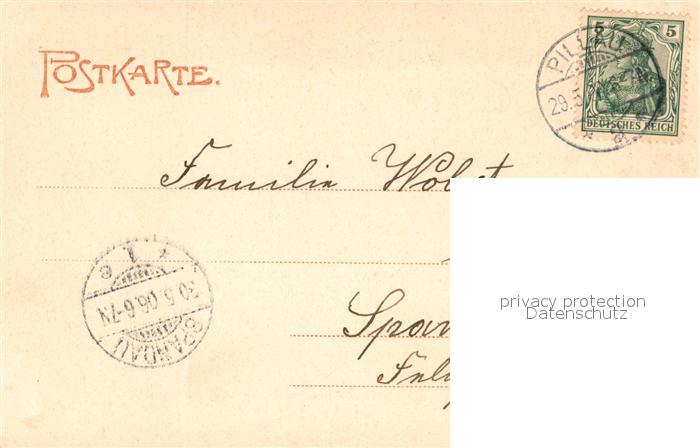 POSTKARTE.
5 5
DEUTSCHES REICH
PILLAU
29.5.
Familie
30.5.06.6-7N
SPANDAU
* 1 e
Span
privacy protection
Datenschutz